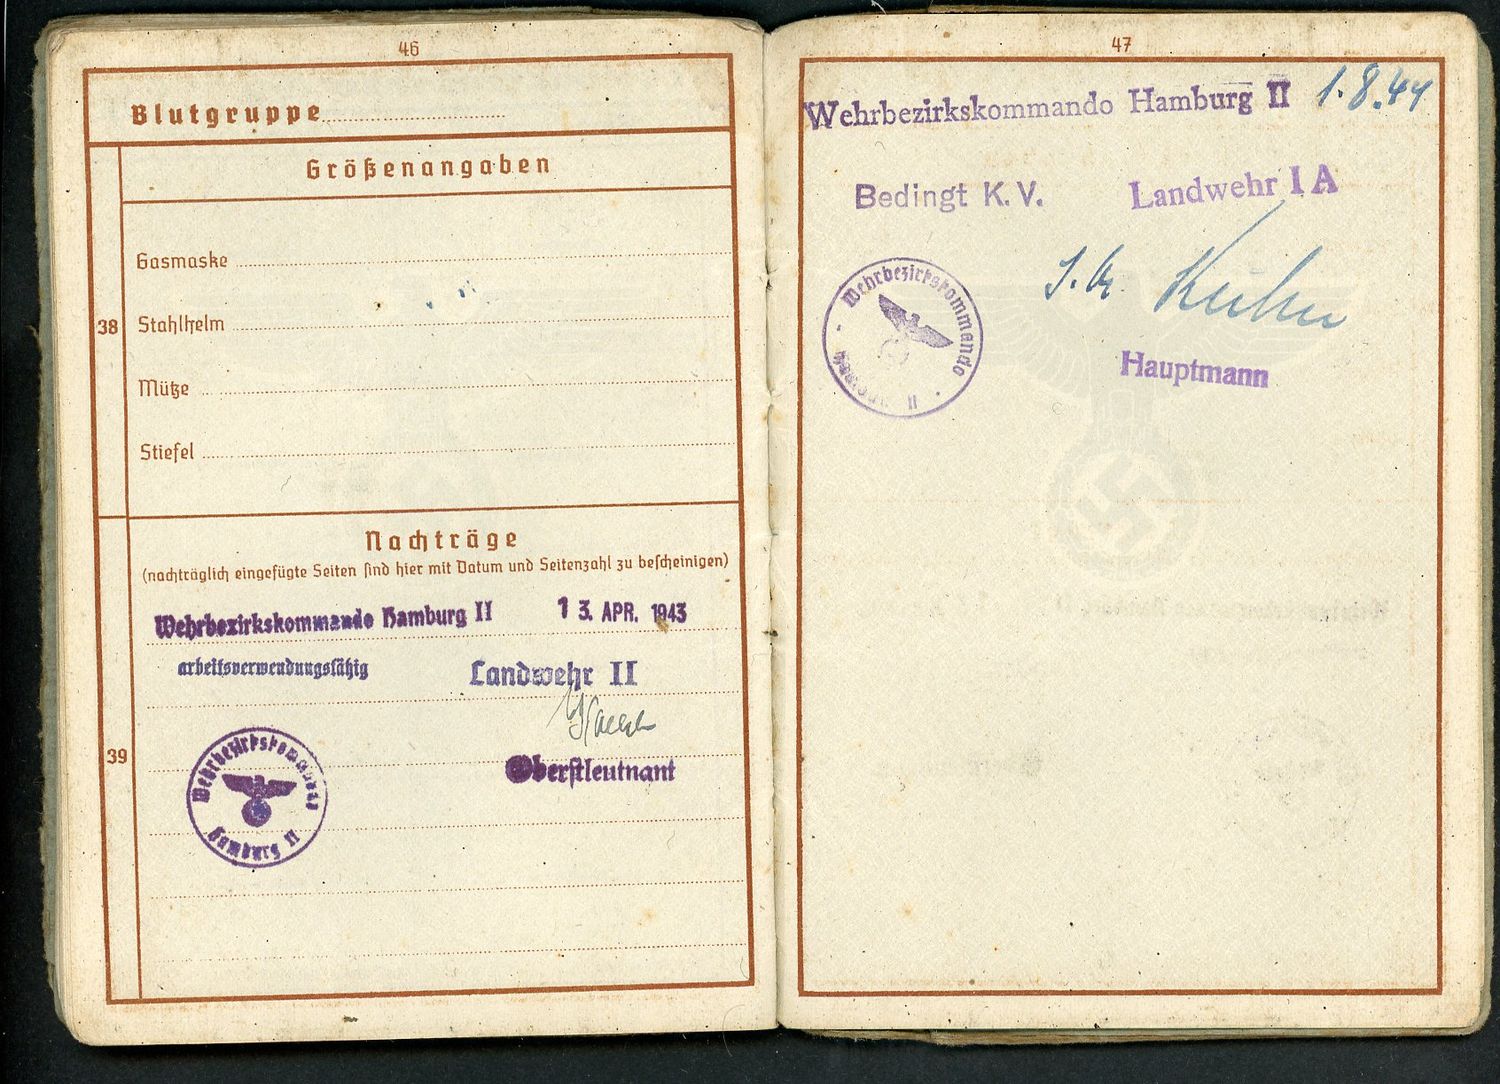 46
Blutgruppe
Größenangaben
38
Gasmaske
Stahlhelm
Mütze
Stiefel
39
Nachträge
(nachträglich eingefügte Seiten sind hier mit Datum und Seitenzahl zu bescheinigen)
Wehrbezirkskommando Hamburg II 13. APR. 1943
arbeitsverwendungsfähig Landwehr II
Oberstleutnant
Wehrbezirkskommando
Hamburg II
47
Wehrbezirkskommando Hamburg II 1.8.44
Bedingt K.V. Landwehr I A
Wehrbezirkskommando
Hamburg II
Hauptmann